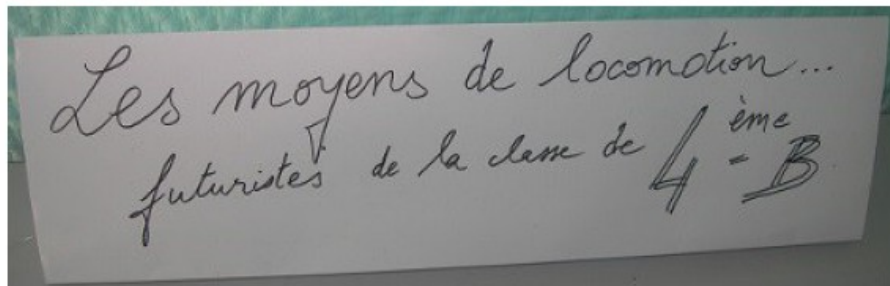 Les moyens de locomotion...
futuristes de la classe de 4ème-B